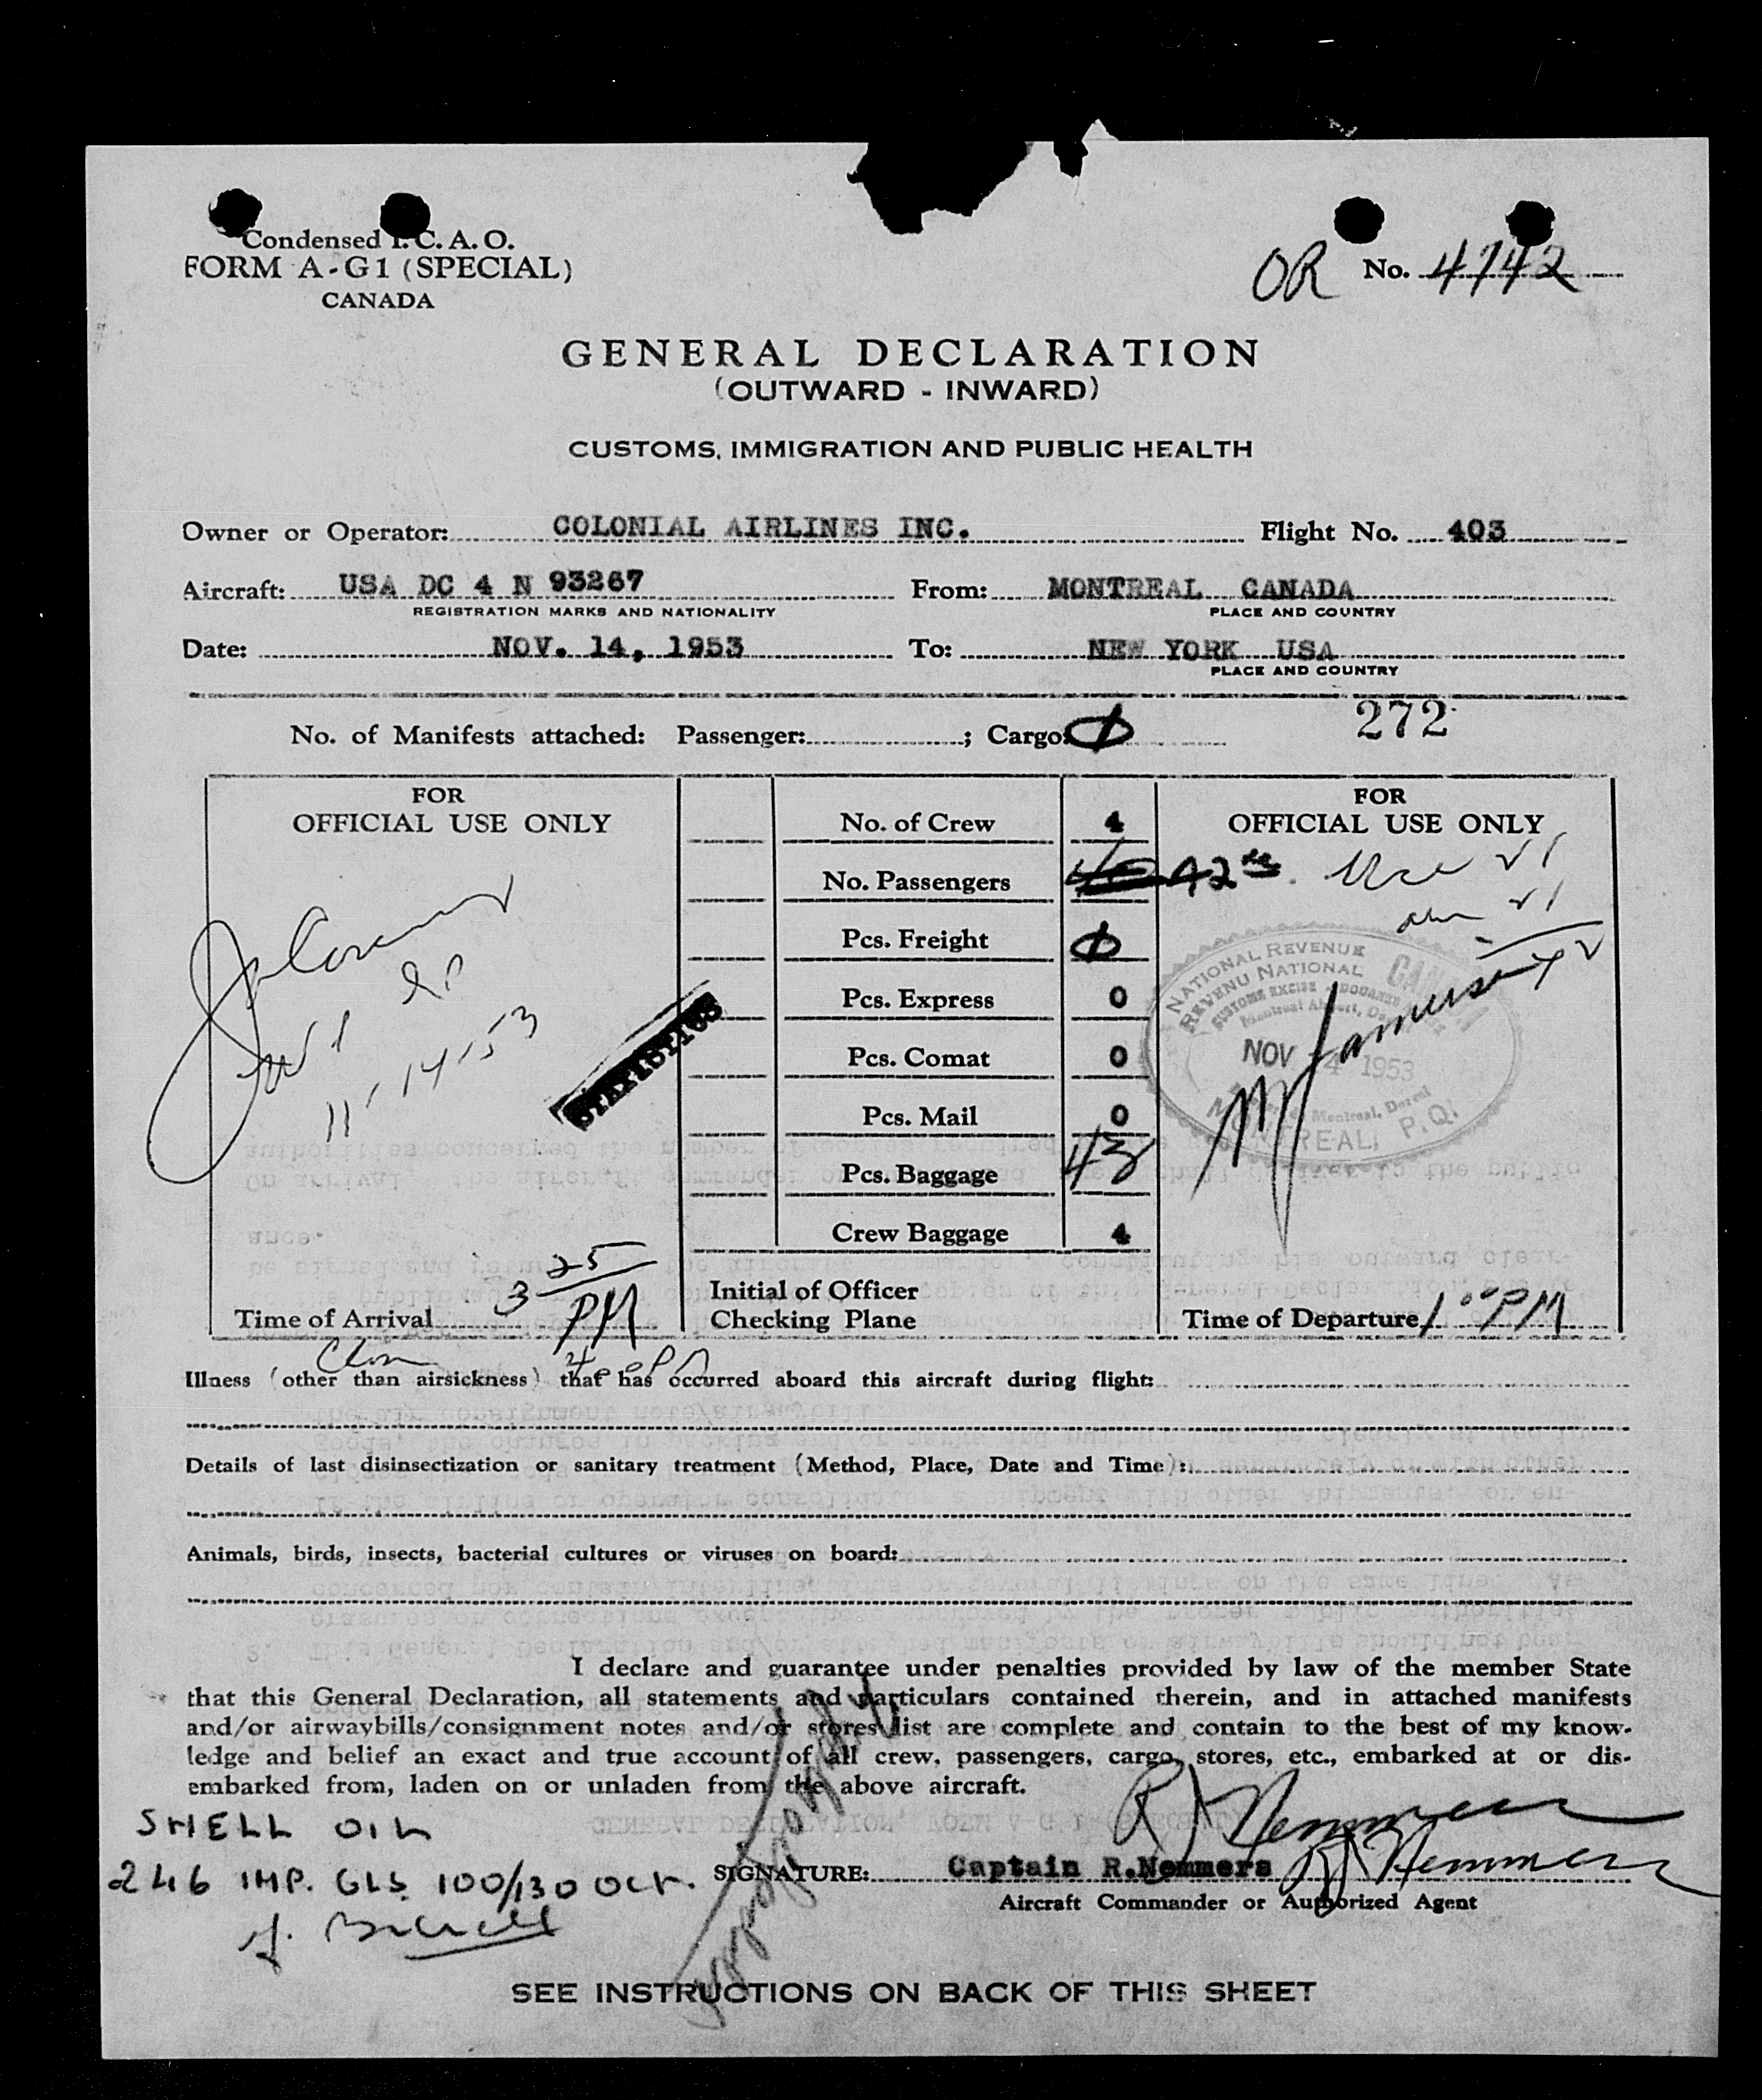 Condensed I. C. A. O.
FORM A-G1 (SPECIAL)
CANADA
OR No. 4742
GENERAL DECLARATION
(OUTWARD - INWARD)
CUSTOMS, IMMIGRATION AND PUBLIC HEALTH
Owner or Operator: COLONIAL AIRLINES INC. Flight No. 403
Aircraft: USA DC 4 N 93267 From: MONTREAL CANADA
REGISTRATION MARKS AND NATIONALITY PLACE AND COUNTRY
Date: NOV. 14, 1953 To: NEW YORK USA
PLACE AND COUNTRY
272
No. of Manifests attached: Passenger: ; Cargo:
FOR
OFFICIAL USE ONLY
11-14-53
STATISTICS
Time of Arrival 3 25 PM
No. of Crew 4
No. Passengers 42
Pcs. Freight
Pcs. Express 0
Pcs. Comat 0
Pcs. Mail 0
Pcs. Baggage 43
Crew Baggage 4
Initial of Officer
Checking Plane
FOR
OFFICIAL USE ONLY
NATIONAL REVENUE
REVENU NATIONAL
CANADA
CUSTOMS EXCISE - DOUANES
NOV 14 1953
Montreal, Dorval
MONTREAL P.Q.
Time of Departure 1 00 PM
Illness (other than airsickness) that has occurred aboard this aircraft during flight:
Details of last disinsectization or sanitary treatment (Method, Place, Date and Time):
Animals, birds, insects, bacterial cultures or viruses on board:
I declare and guarantee under penalties provided by law of the member State
that this General Declaration, all statements and particulars contained therein, and in attached manifests
and/or airwaybills/consignment notes and/or stores list are complete and contain to the best of my know-
ledge and belief an exact and true account of all crew, passengers, cargo, stores, etc., embarked at or dis-
embarked from, laden on or unladen from the above aircraft.
R J Nemmers
SHELL OIL
246 IMP. GLS. 100/130 OCT.
SIGNATURE: Captain R.Nemmers R J Nemmers
Aircraft Commander or Authorized Agent
SEE INSTRUCTIONS ON BACK OF THIS SHEET